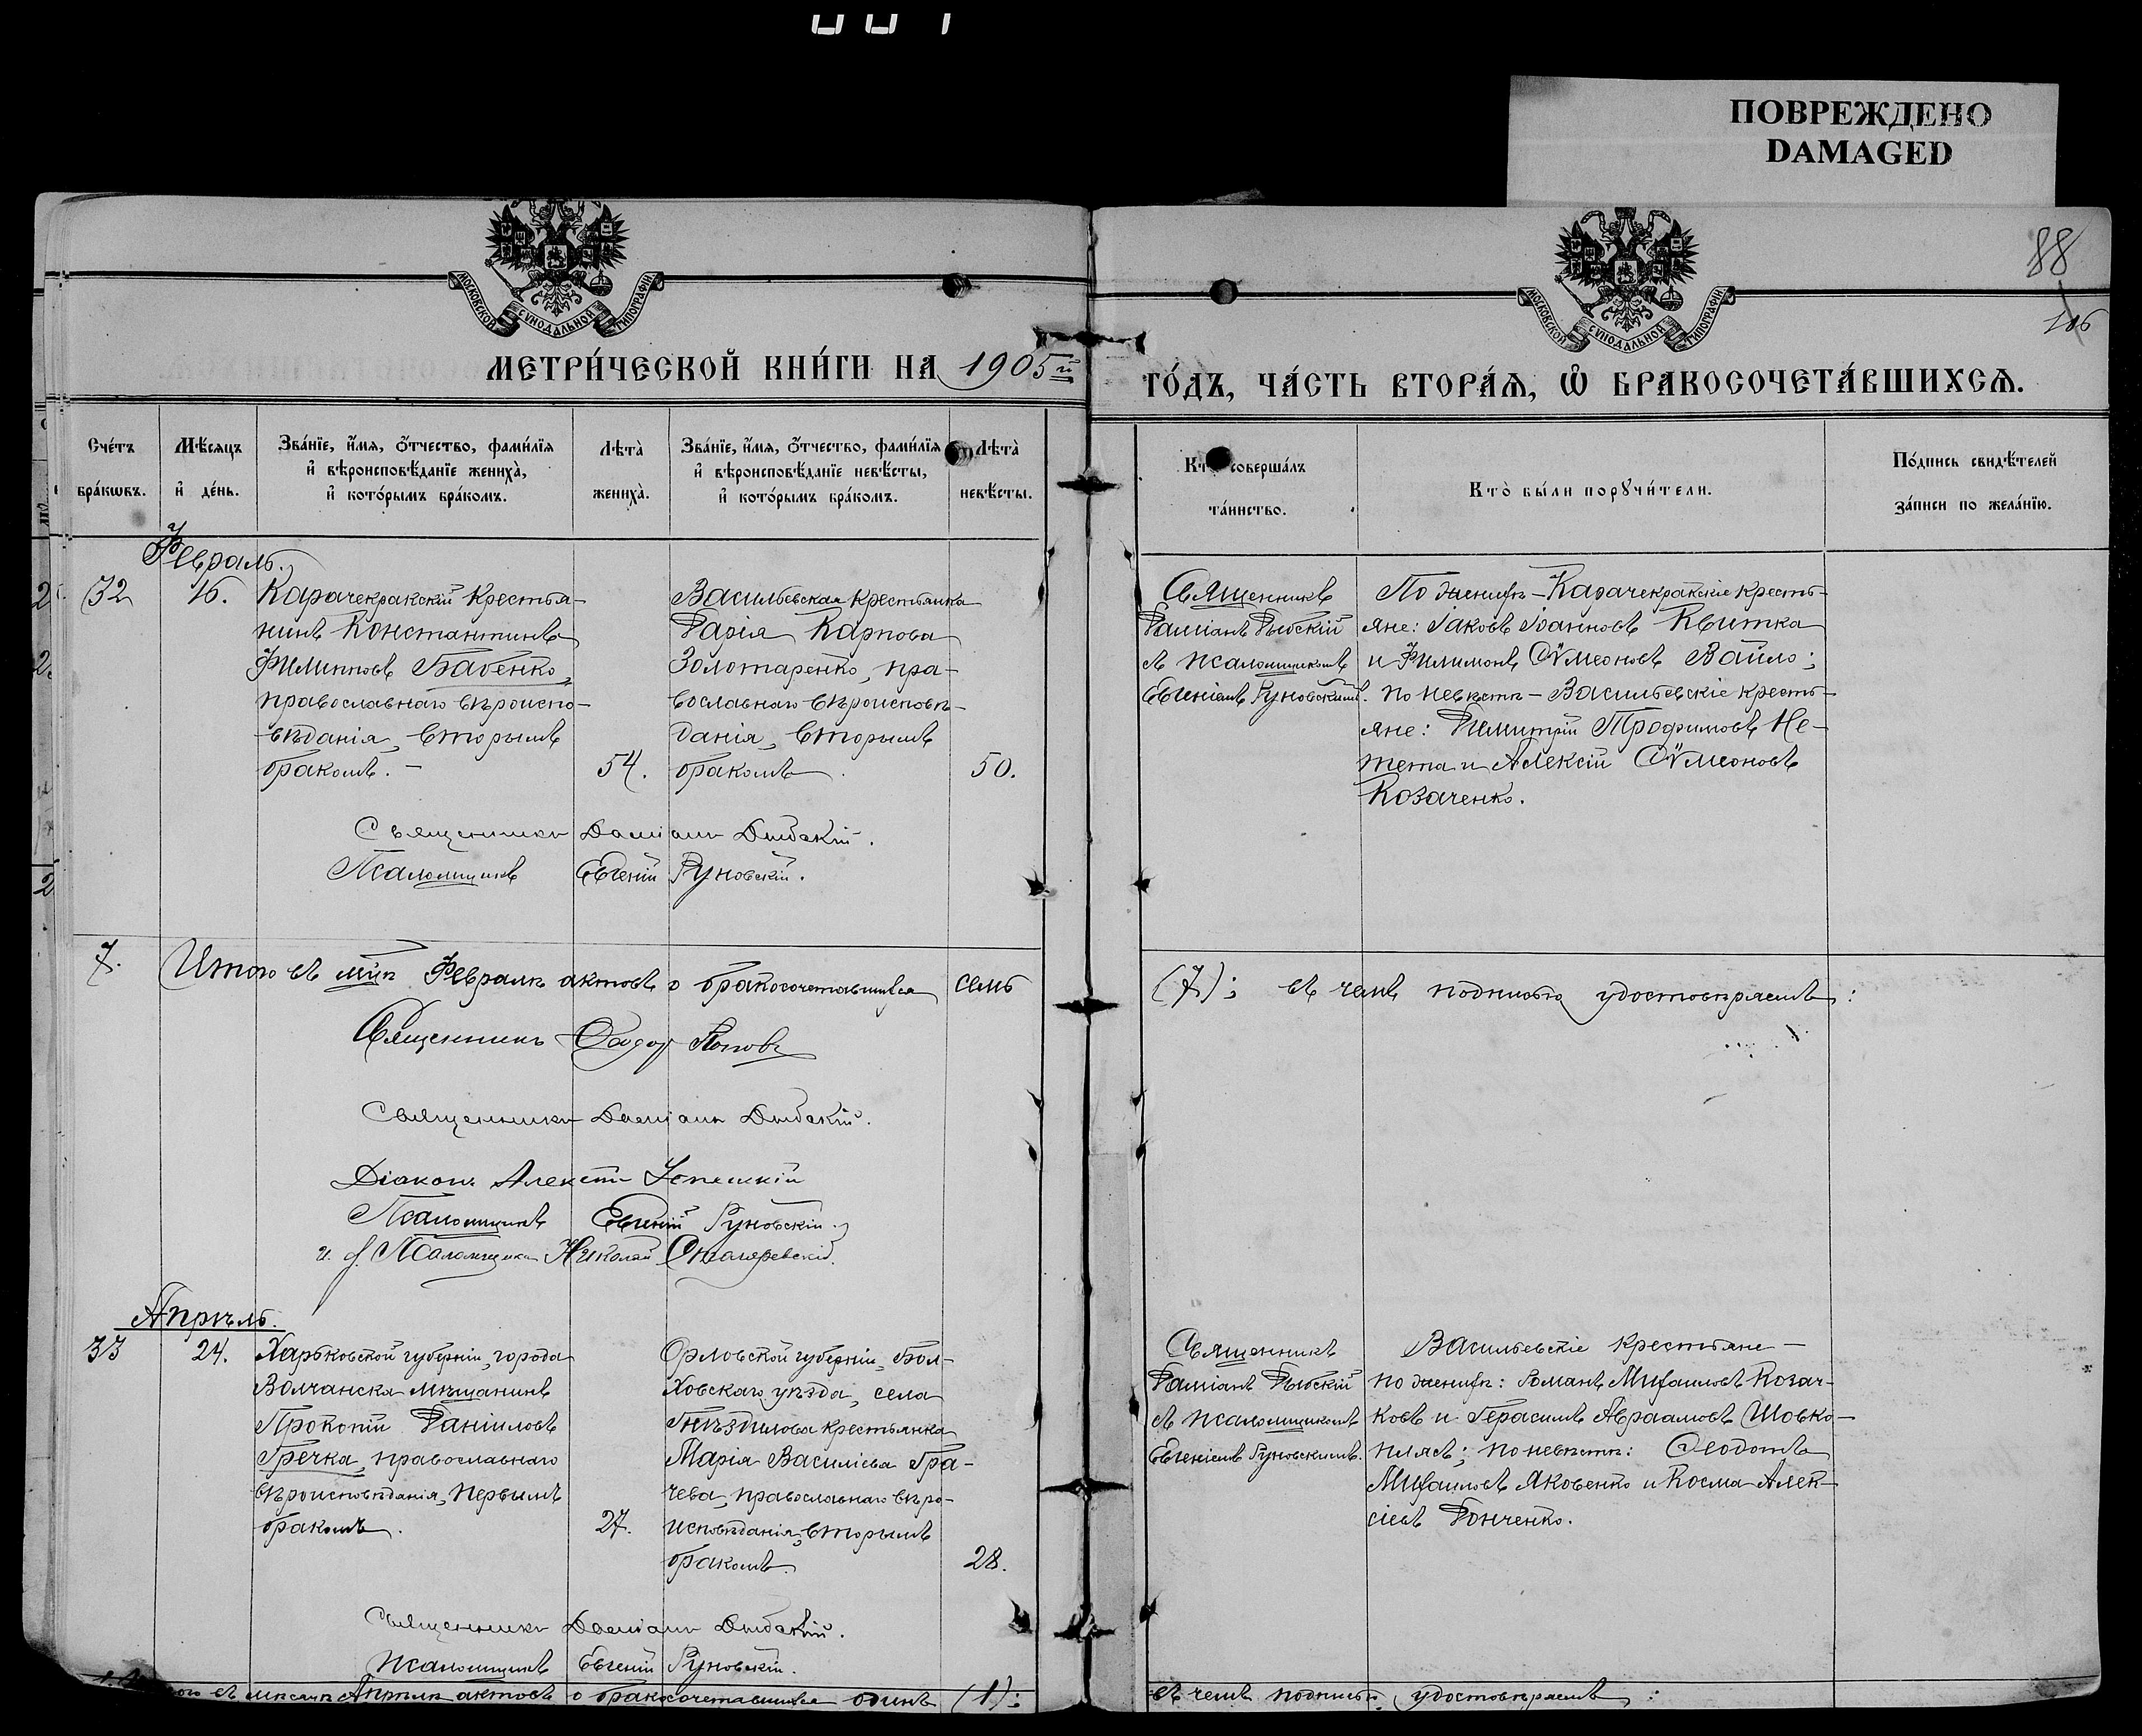 ПОВРЕЖДЕНО
DAMAGED
МОСКОВСКОЙ СѴНОДАЛЬНОЙ ТИПОГРАФІИ
МОСКОВСКОЙ СѴНОДАЛЬНОЙ ТИПОГРАФІИ
88
106
МЕТРИ́ЧЕСКОЙ КНИ́ГИ НА 1905й
ГО́ДЪ, ЧА́СТЬ ВТОРА́Ѧ, Ѽ БРАКОСОЧЕТА́ВШИХСѦ.
Сче́тъ
бра́кѡвъ.
Мѣ́сяцъ
и҆ де́нь.
Зва́нїе, и҆́мя, о҆́тчество, фами́лїя
и҆ вѣроисповѣ́данїе жениха̀,
и҆ кото́рымъ бра́комъ.
Лѣта̀
жениха̀.
Зва́нїе, и҆́мя, о҆́тчество, фами́лїя
и҆ вѣроисповѣ́данїе невѣ́сты,
и҆ кото́рымъ бра́комъ.
Лѣта̀
невѣ́сты.
Кто̀ соверша́лъ
та́инство.
Кто̀ бы́ли порꙋчи́тели.
По́дпись свидѣ́телей
за́писи по жела́нїю.
Февраль.
32
16.
Карачекракскій крестья-
нинъ Константинъ
Филипповъ Бабенко,
православнаго вѣроиспо-
вѣданія, вторымъ
бракомъ.-
54.
Васильевская крестьянка
Дарія Карпова
Золотаренко, пра-
вославнаго вѣроисповѣ-
данія, вторымъ
бракомъ.
50.
Священникъ
Даміанъ Дыбскій
съ псаломщикомъ
Евгеніемъ Руновскимъ.
По женихѣ - Карачекракскіе кресть-
яне: Іаковъ Іоанновъ Квитка
и Филимонъ Сѵмеоновъ Вайло;
по невѣстѣ - Васильевскіе кресть-
яне: Димитрій Трофимовъ Не-
тета и Алексій Сѵмеоновъ
Козаченко.
Священникъ Даміанъ Дыбскій.
Псаломщикъ Евгеній Руновскій.
7.
Итого въ мцѣ Февралѣ актовъ о бракосочетавшихся семь
(7); въ чемъ подписью удостовѣряемъ:
Священникъ Ѳеодоръ Поповъ
Священникъ Даміанъ Дыбскій.
Діаконъ Алексій
Псаломщикъ Евгеній Руновскій.
и. д. Псаломщика Николай
Апрѣль.
33
24.
Харьковской губерніи, города
Волчанска мѣщанинъ
Прокопій Даніиловъ
Гречка, православнаго
вѣроисповѣданія, первымъ
бракомъ.
27.
Орловской губерніи, Бол-
ховскаго уѣзда, села
Гнѣздилова крестьянка
Марія Василіева Гра-
чева, православнаго вѣро-
исповѣданія, вторымъ
бракомъ.
28.
Священникъ
Даміанъ Дыбскій
съ псаломщикомъ
Евгеніемъ Руновскимъ.
Васильевскіе крестьяне -
по женихѣ: Романъ Михаиловъ Козач-
ковъ и Герасимъ Авраамовъ Шовко-
плясъ; по невѣстѣ: Ѳеодотъ
Михаиловъ Яковенко и Косма Алек-
сіевъ Гонченко.
Священникъ Даміанъ Дыбскій.
Псаломщикъ Евгеній Руновскій.
въ мѣсяцѣ Апрѣлѣ актовъ о бракосочетавшихся одинъ (1);
въ чемъ подписью удостовѣряемъ: